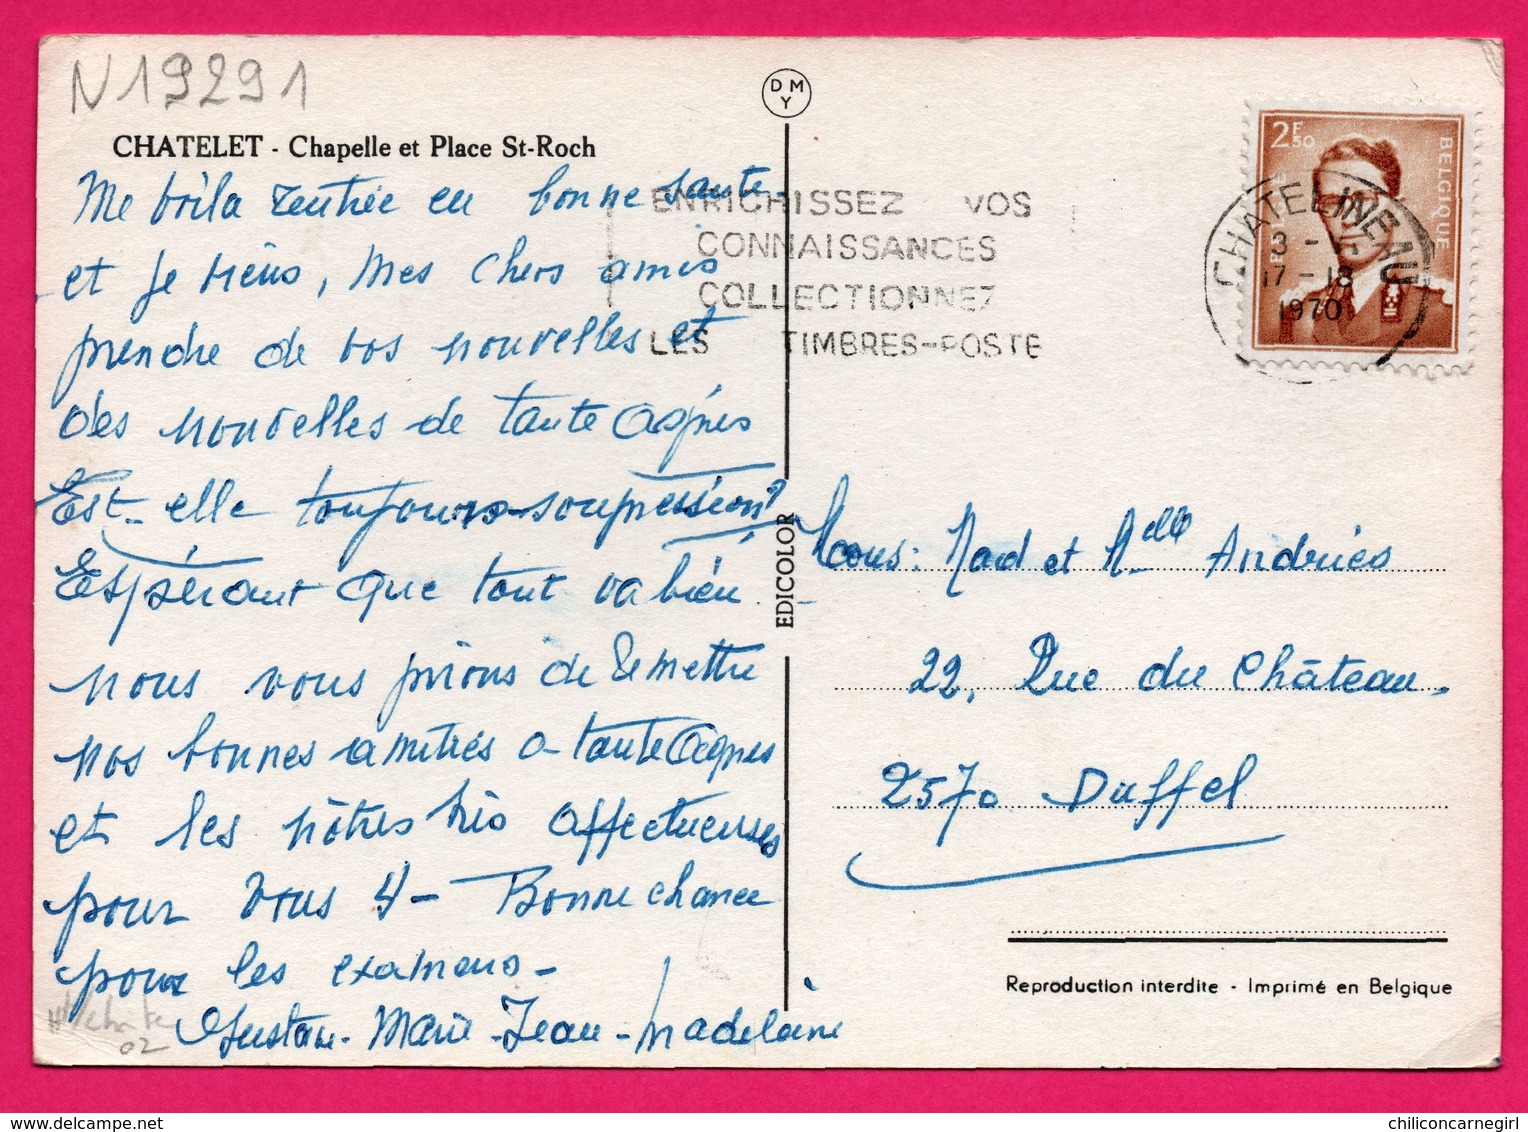 N19291
CHATELET - Chapelle et Place St-Roch
Me voila rentrée en bonne sante
et je viens, mes chers amis
prendre de vos nouvelles et
des nouvelles de tante Agnès
Est-elle toujours en
Espérant que tout va bien
nous vous prions de remettre
nos bonnes amitiés a tante Agnes
et les nôtres très affectueuses
pour vous 4 - Bonne chance
pour les examens -
Gustave - Marie - Jean - Madeleine
02
D M
Y
EDICOLOR
ENRICHISSEZ VOS
CONNAISSANCES
COLLECTIONNEZ
LES TIMBRES-POSTE
2F50
BELGIQUE
BELGIE
CHATELINEAU
17-18
1970
Mad et Melle Andries
22, Rue du Château.
2570 Duffel
Reproduction interdite - Imprimé en Belgique
chiliconcarnegirl